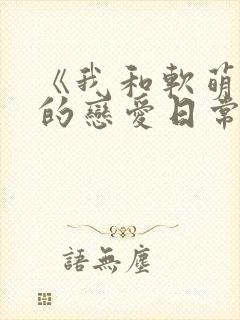 《我和軟萌
的戀愛日常
語無塵